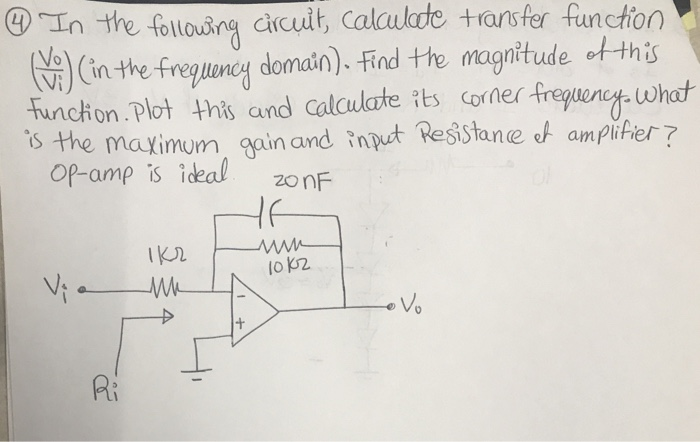 ④ In the following circuit, Calculate transfer function
(Vo/Vi) (in the frequency domain). Find the magnitude of this
function. Plot this and calculate its corner frequency. What
is the maximum gain and input Resistance of amplifier?
Op-amp is ideal.
20nF
1KΩ
10KΩ
Vi
-
+
Vo
Ri